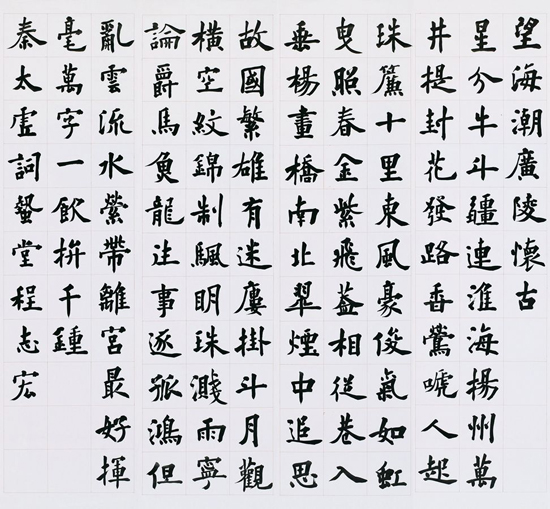 望海潮廣陵懷古
星分牛斗疆連淮海揚州萬
井提封花發路香鶯嗁人起
珠簾十里東風豪俊氣如虹
曳照春金紫飛葢相從巷入
垂楊畫橋南北翠煙中追思
故國繁雄有迷廔掛斗月觀
橫空紋錦制颿明珠濺雨寧
論爵馬魚龍往事逐孤鴻但
亂雲流水縈帶離宮最好揮
毫萬字一飲拚千鍾
秦太虛詞堂程志宏